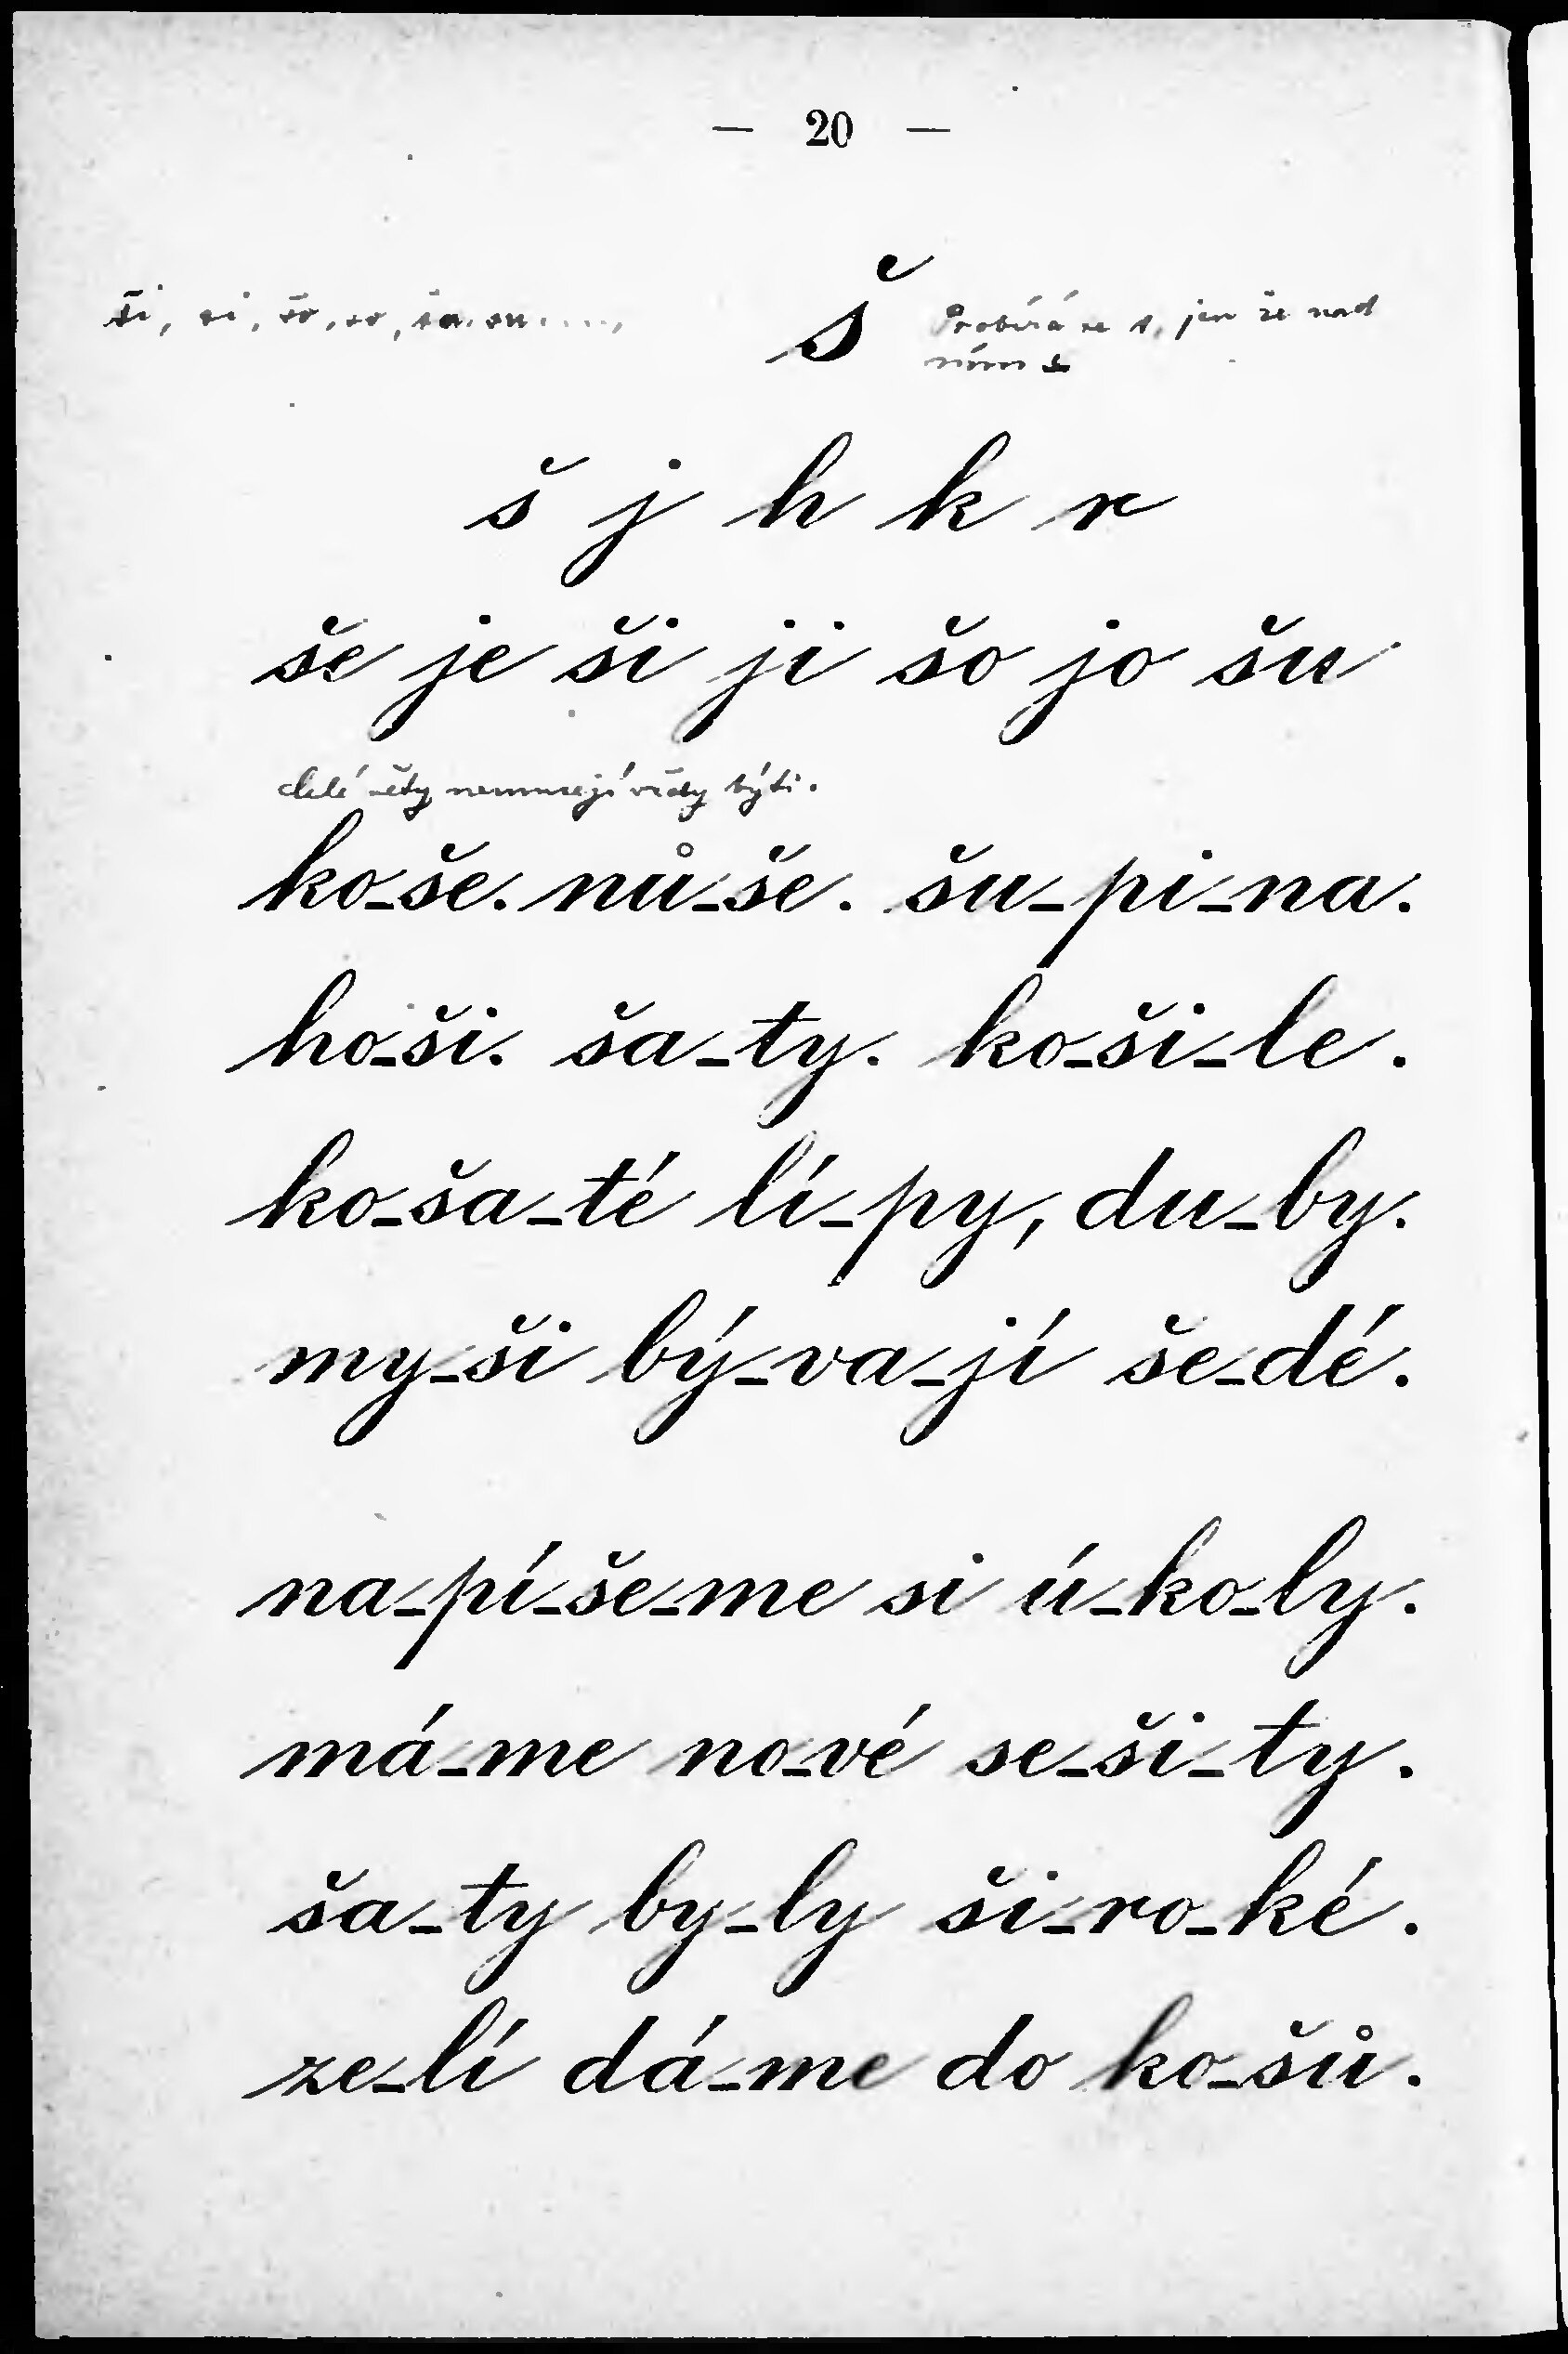 — 20 —
ši, si, šo, so, ša, su .....,
š
Probírá se s, jen že nad
ním
š j h k r
še je ši ji šo jo šu
Celé věty nemusejí vždy býti.
ko-še. nů-še. šu-pi-na.
ho-ši. ša-ty. ko-ši-le.
ko-ša-té lí-py, du-by.
my-ši bý-va-jí še-dé.
na-pí-še-me si ú-ko-ly.
má-me no-vé se-ši-ty.
ša-ty by-ly ši-ro-ké.
ze-lí dá-me do ko-šů.